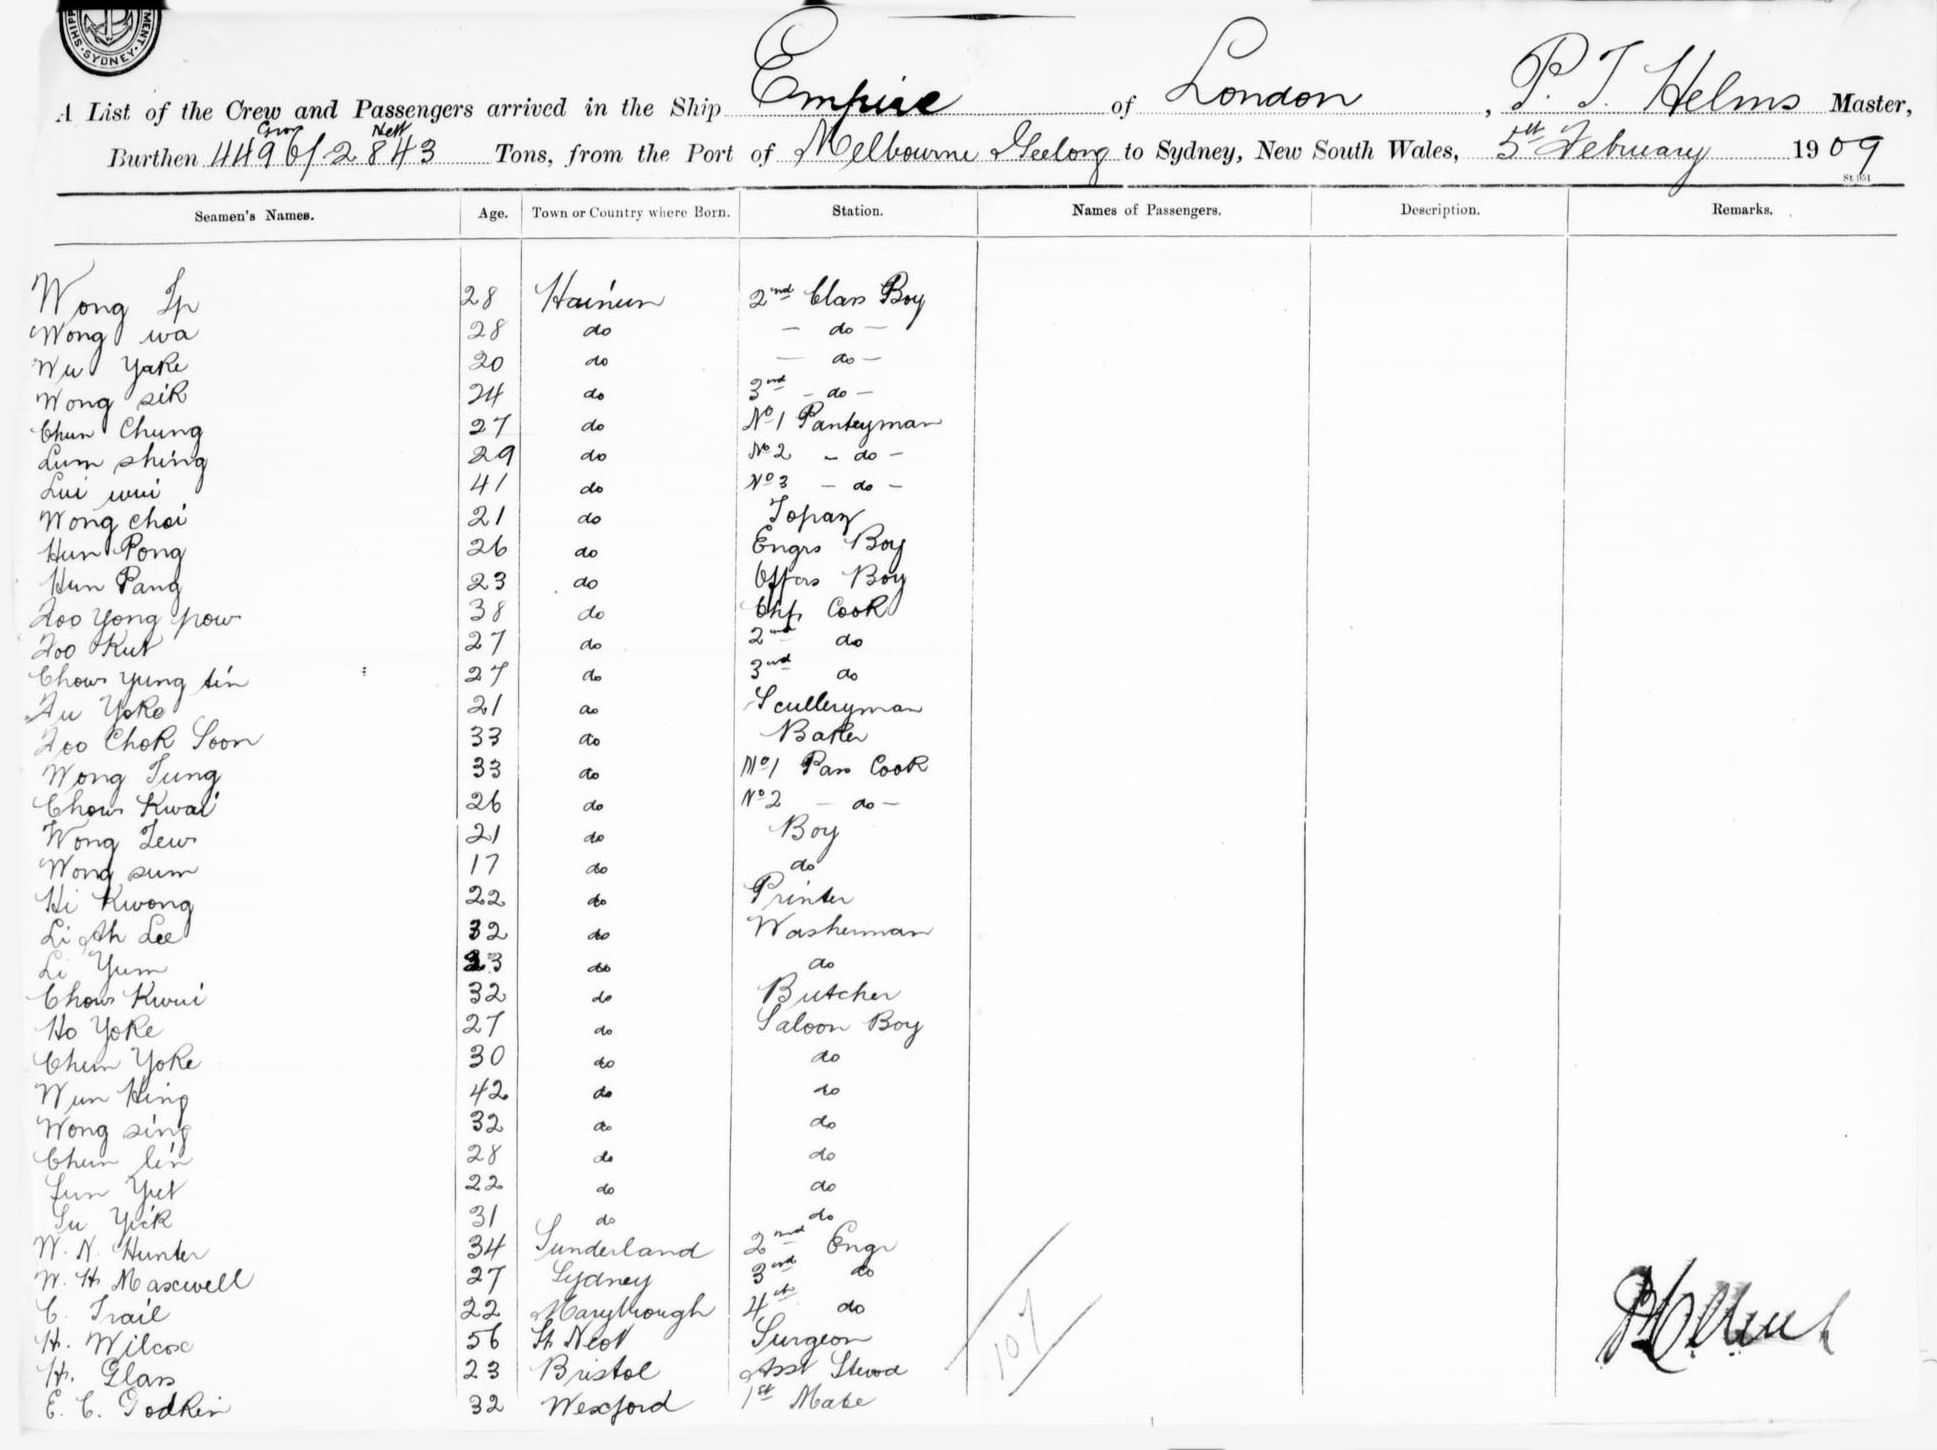 SYDNEY
A List of the Crew and Passengers arrived in the Ship Empire of London, P. T. Helms Master,
Gross Nett
Burthen 4496/2843 Tons, from the Port of Melbourne Geelong to Sydney, New South Wales, 5th February 1909
St 951
Seamen's Names. Age. Town or Country where Born. Station. Names of Passengers. Description. Remarks.
Wong Ip 28 Hainun 2nd Class Boy
Wong wa 28 do – do –
Wu Yake 20 do – do –
Wong sik 24 do 3rd – do –
Chun Chung 27 do No 1 Panteyman
Lum shing 29 do No 2 – do –
Lui wui 41 do No 3 – do –
Wong choi 21 do Topaz
Hun Pong 26 do Engrs Boy
Hun Pang 23 do Offers Boy
Foo Yong pow 38 do Chf Cook
Foo Kut 27 do 2nd do
Chow yung tin 27 do 3rd do
Fu Yoke 21 do Sculleryman
Foo Chok Soon 33 do Baker
Wong Tung 33 do No 1 Pass Cook
Chow Kwai 26 do No 2 – do –
Wong Tew 21 do Boy
Wong sum 17 do do
Hi Kwong 22 do Printer
Li Ah Lee 32 do Washerman
Li Yum 33 do do
Chow Kwui 32 do Butcher
Ho Yoke 27 do Saloon Boy
Chun Yoke 30 do do
Wun Hing 42 do do
Wong sing 32 do do
Chun lin 28 do do
Fun Yut 22 do do
Su Yick 31 do do
W. N. Hunter 34 Sunderland 2nd Engr
W. H. Maxwell 27 Sydney 3rd do
C. Trail 22 Maryborough 4th do
H. Wilcox 56 St Neot Surgeon
H. Glass 23 Bristol Asst Stewd
E. C. Godkin 32 Wexford 1st Mate
107